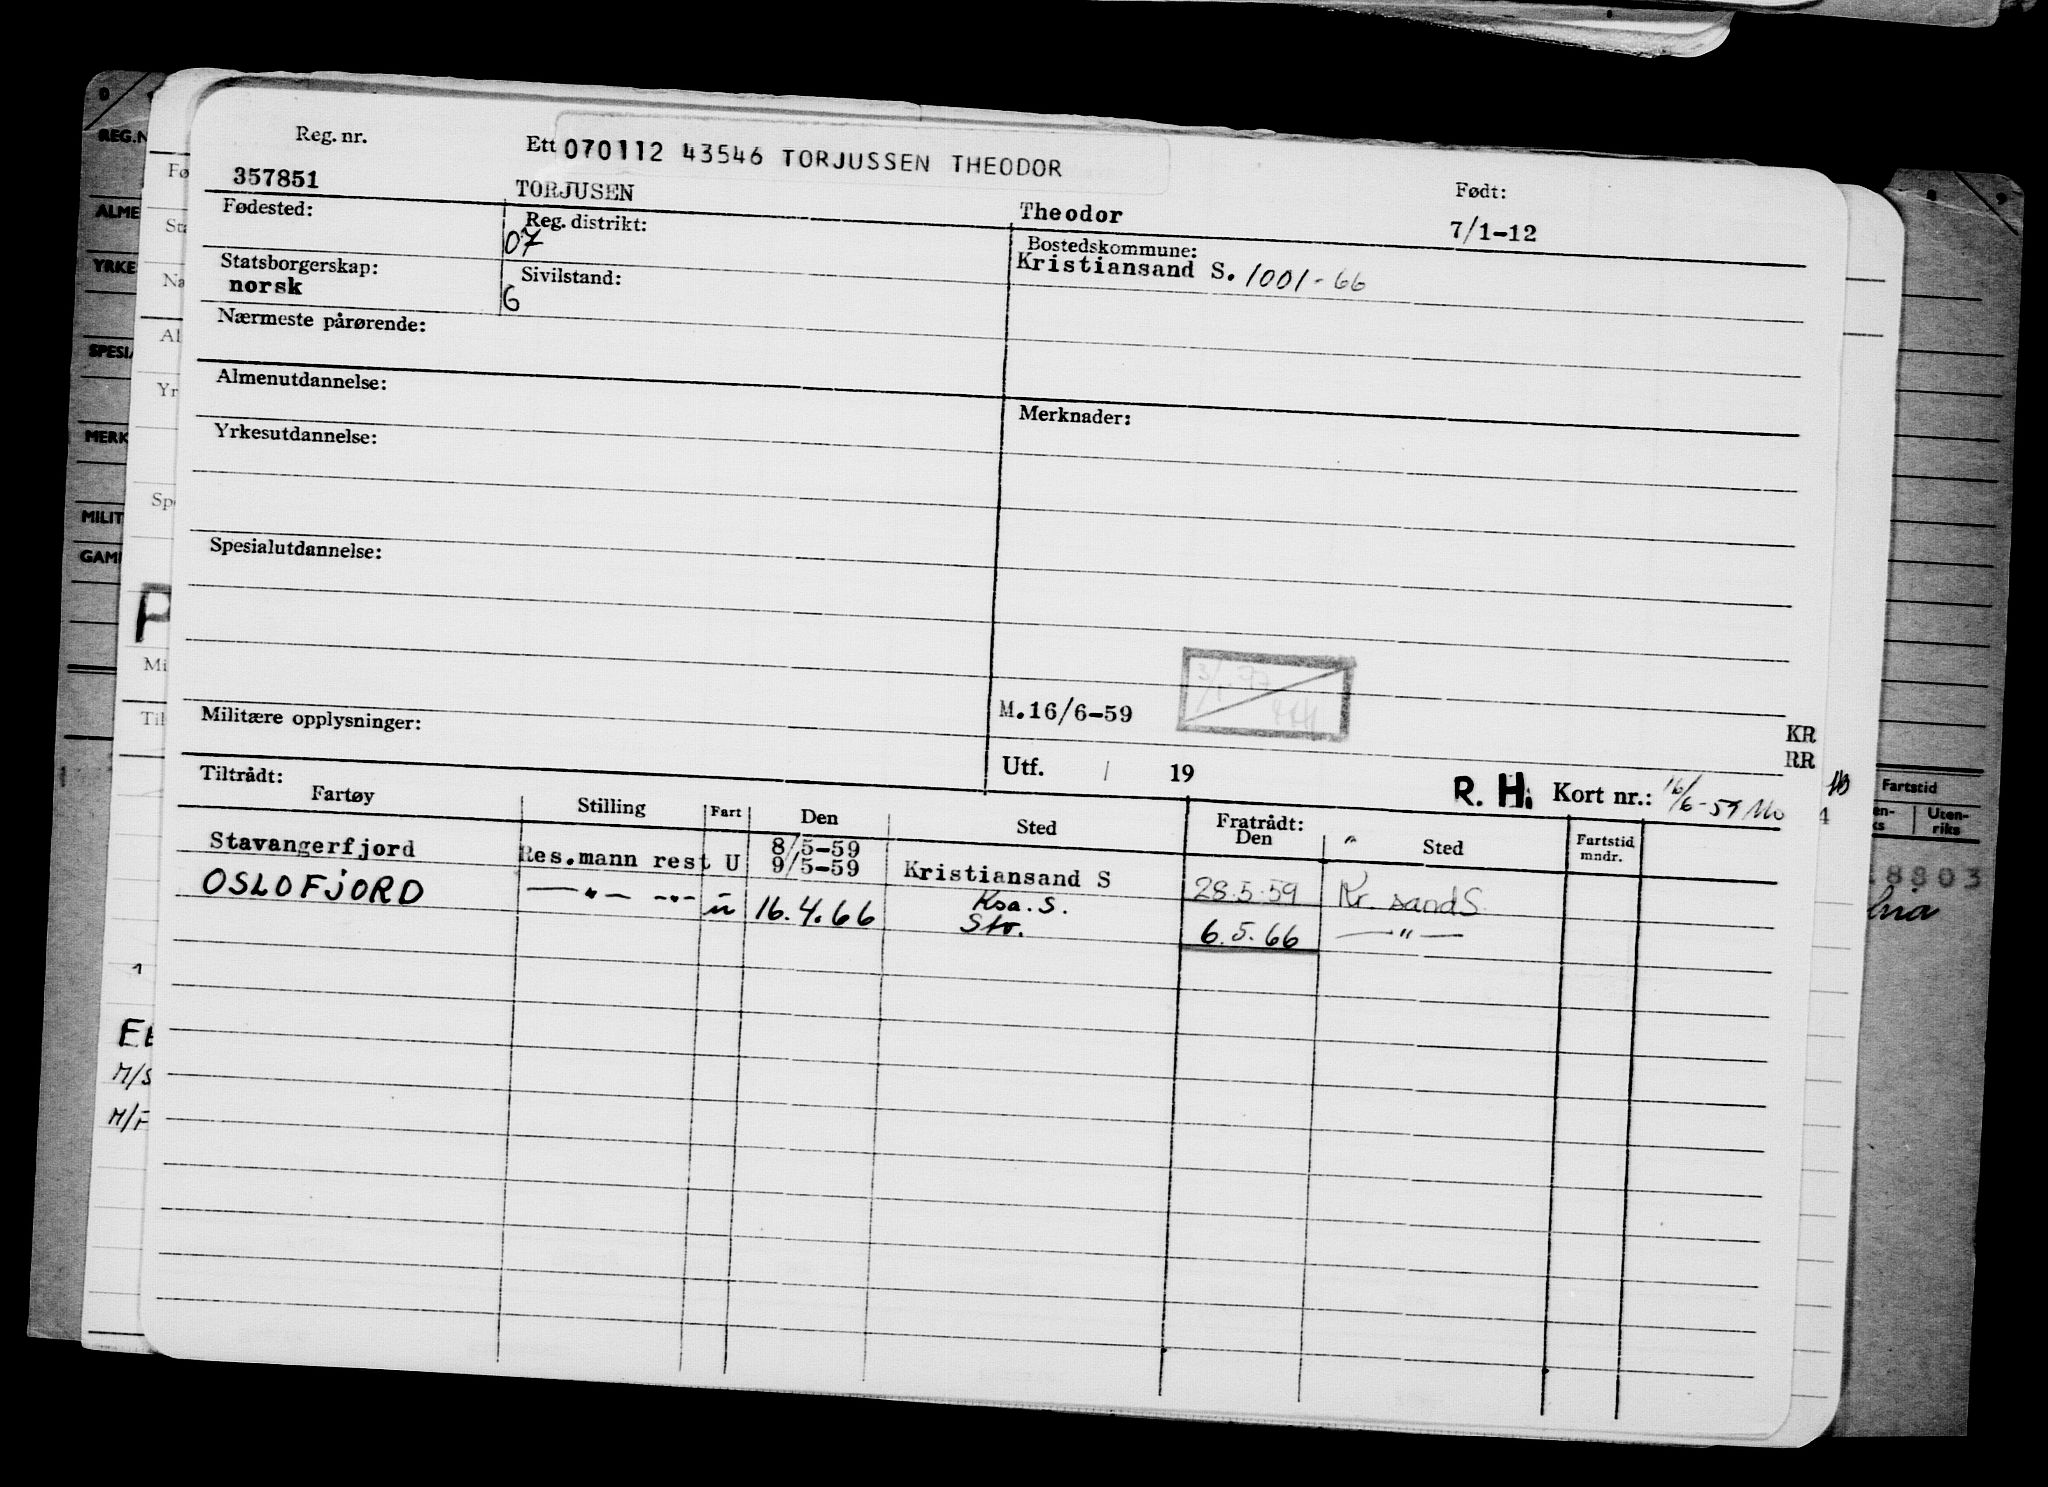 Reg. nr.
Ett 070112 43546 TORJUSSEN THEODOR
Født:
357851 TORJUSEN Theodor 7/1-12
Fødested:
Reg. distrikt:
07
Bostedskommune:
Kristiansand S. 1001-66
Statsborgerskap:
norsk
Sivilstand:
G
Nærmeste pårørende:
Almenutdannelse:
Merknader:
Yrkesutdannelse:
Spesialutdannelse:
Militære opplysninger:
M.16/6-59
3/1.77
KR
RR
Utf. / 19
R. H. Kort nr.: 16/6-59 Mo
Tiltrådt:
Fartøy Stilling Fart Den Sted Fratrådt: Den " Sted Fartstid mndr.
8/5-59
Stavangerfjord Res.mann rest U 9/5-59 Kristiansand S 28.5.59 Kr.sand S.
OSLOFJORD —"— —"— u 16.4.66 Ksa. S. 6.5.66 —"—
Str.
REG.N
ALME
YRKE
SPESIA
MERK
MILIT
GAM
Fø
Sta
Na
Al
Yr
Spe
P
Mi
Til
M/S
Fartstid
Uten-
riks
8803